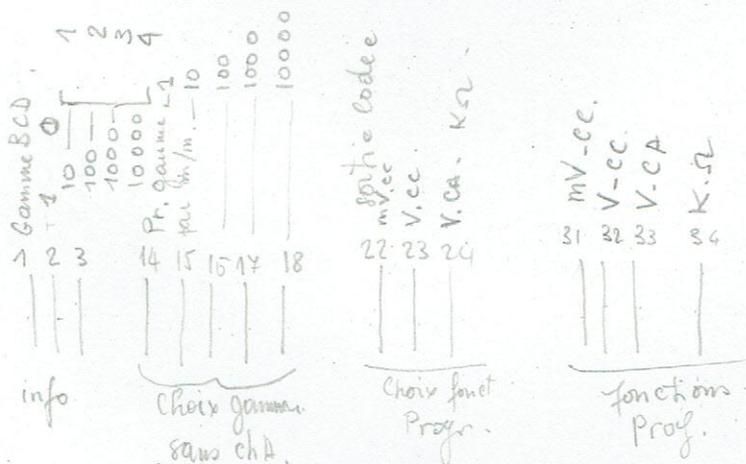 1 2 3 4
Gamme BCD
1 0
10
100
1000
10000
Pr. gamme 1
10
100
1000
10000
Sortie Codée
mV.cc
V.cc.
V.CA. KΩ.
mV-CC.
V-CC.
V-CA
K.Ω
1 2 3
14 15 16 17 18
22 23 24
31 32 33 34
info
Choix gamme
sans chA.
Choix fonct
Progr.
fonctions
Prog.